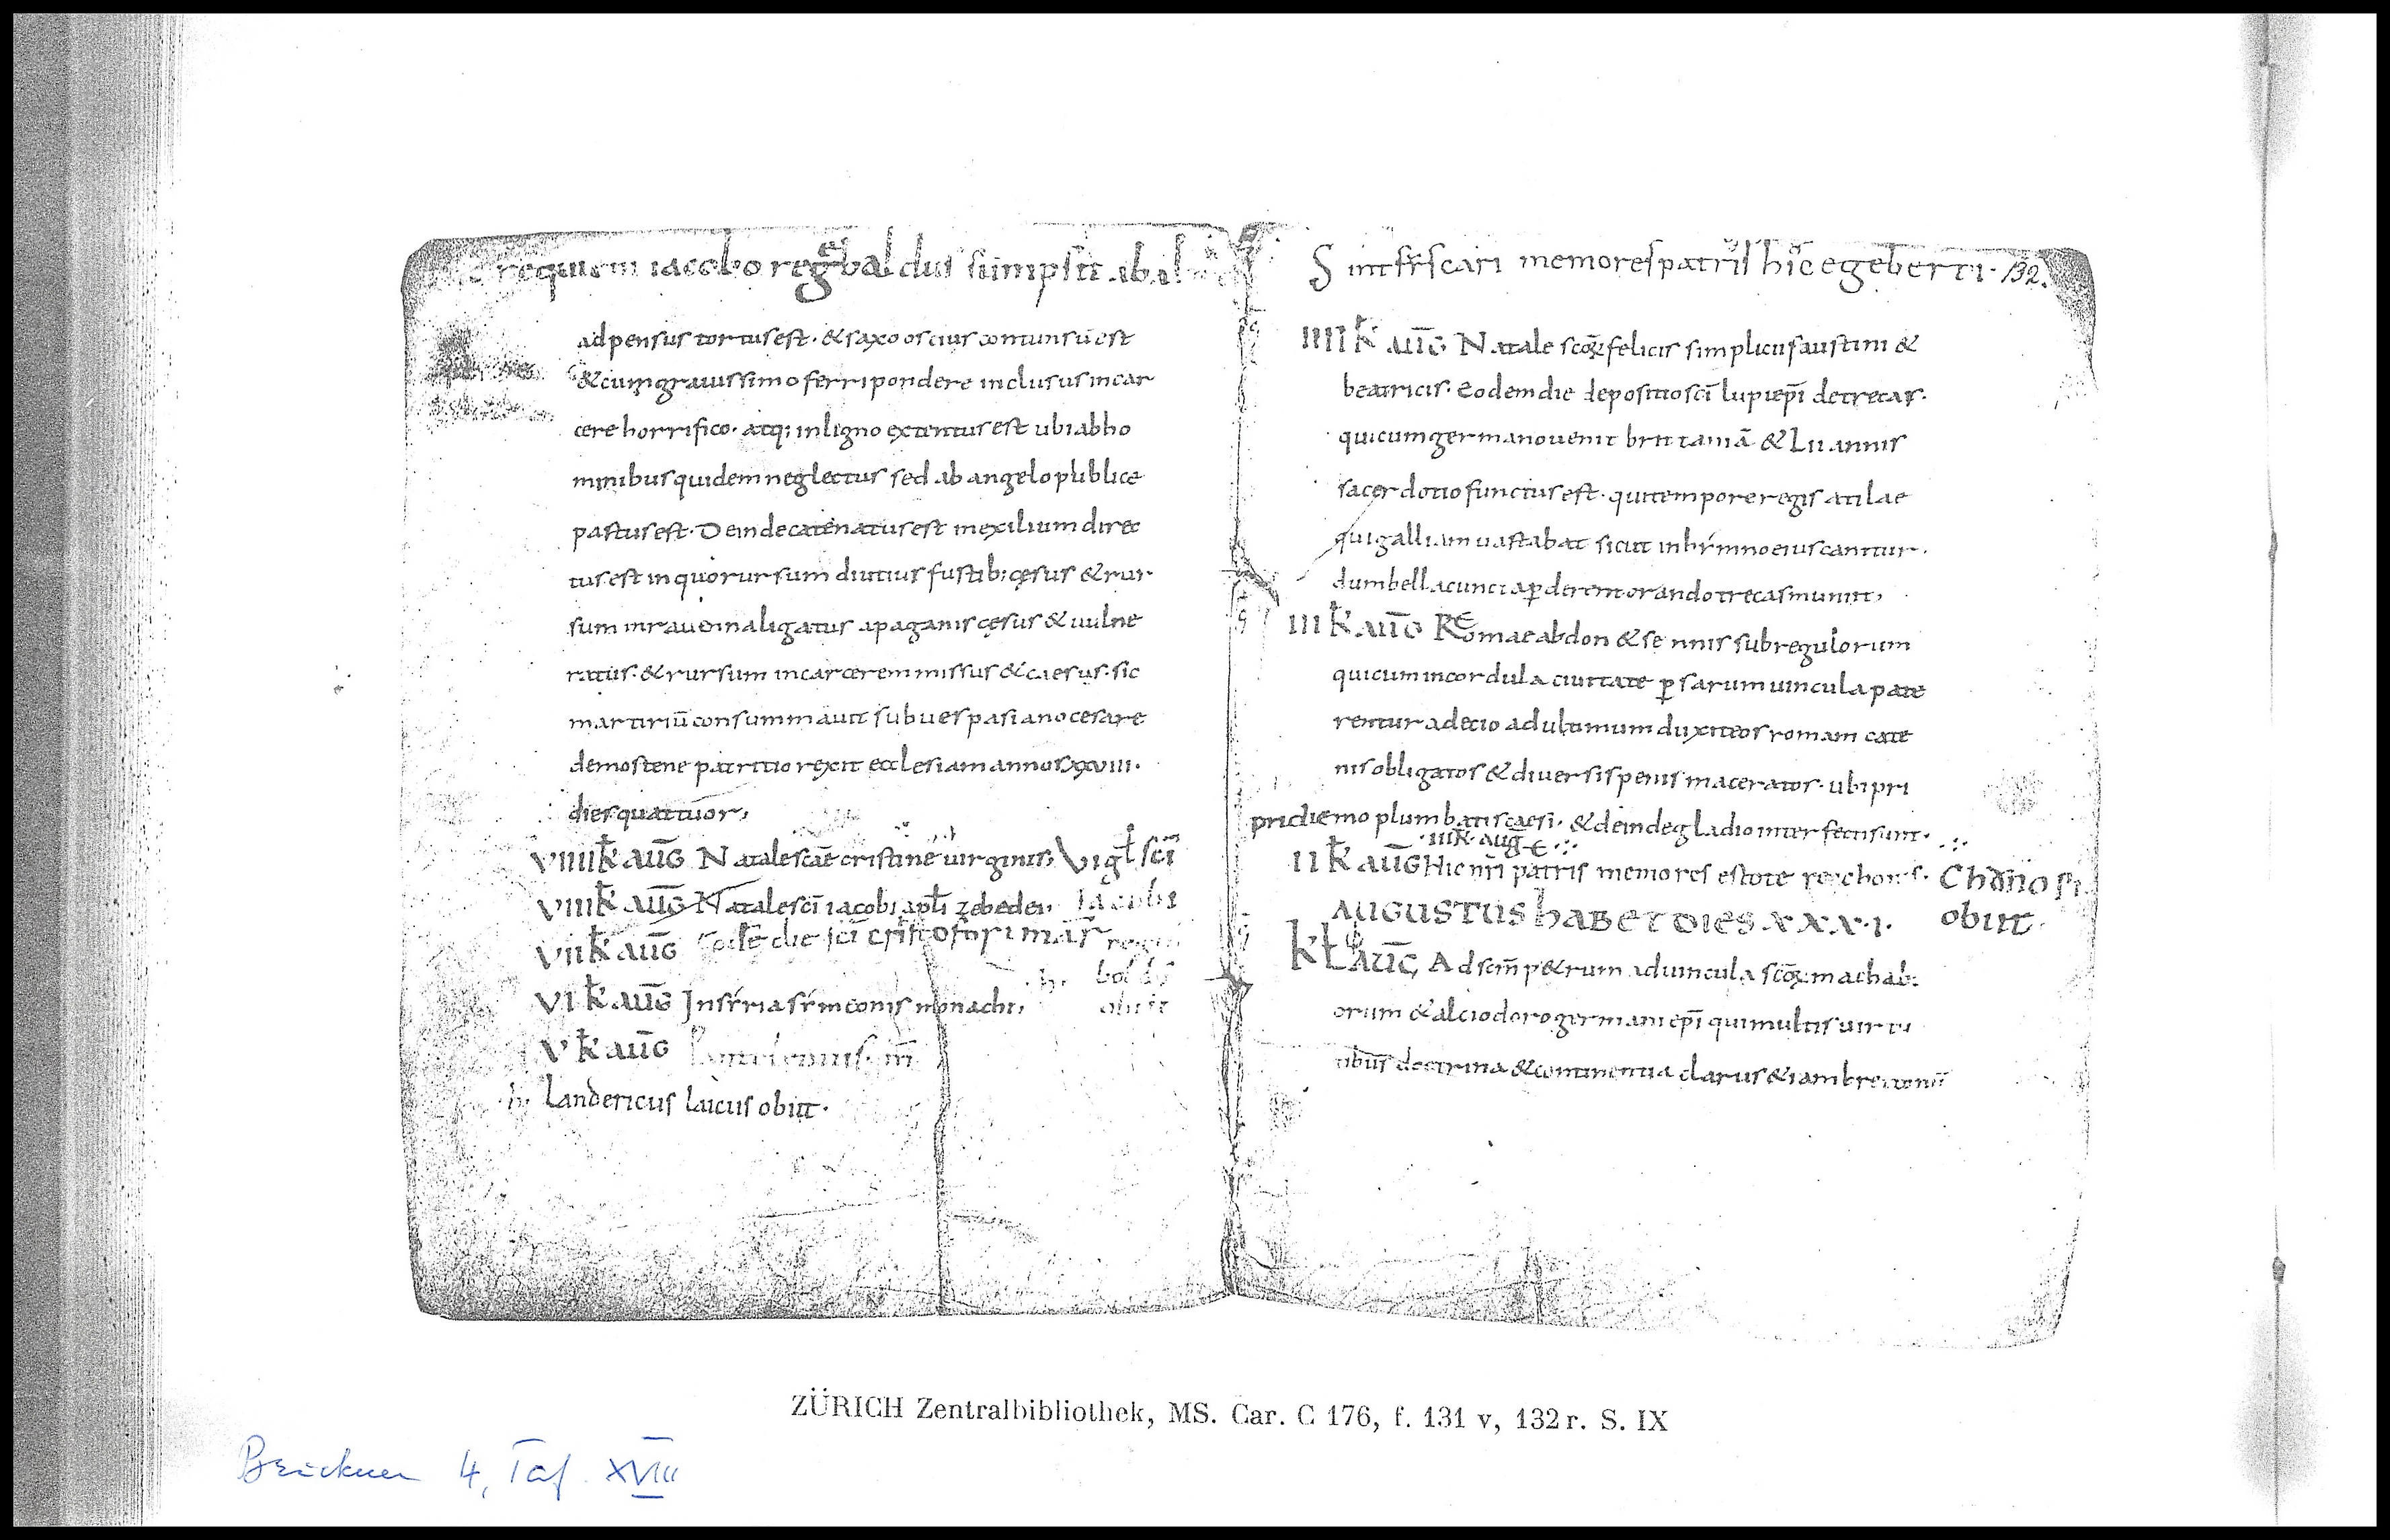 requiem iacobo regbaldus sumpsit ab
adpensus tortus est · & saxo os eius contunsū est
& cum gravissimo ferri pondere inclusus in car
cere horrifico · atq; in ligno extentus est ubi ab ho
minibus quidem neglectus sed ab angelo publice
pastus est · Deinde catenatus est in exilium direc
tus est in quo rursum diutius fustib; cęsus & rur
sum in ravenna ligatus a paganis cęsus & vulne
ratus · & rursum in carcerem missus & caesus · sic
martiriū consummavit sub vespasiano cesare
demostene patritio rexit ecclesiam annos xxviii ·
dies quattuor,
VIIII k̄ auḡ Natale scae cristine virginis, Vigł scī
VIII k̄ auḡ Natale scī iacobi apłi zebedei, iacobi
VII k̄ auḡ eodē die scī cristofori mar̄
VI k̄ auḡ In syria symeonis monachi, obiit
V k̄ auḡ
h landericus laicus obiit ·
Sint frs cari memores patris hic egeberti · 132.
IIII k̄ auḡ Natale scoꝝ felicis simplicii faustini &
beatricis · eodem die depositio scī lupi epī de trecas ·
qui cum germano venit brittaniā & LII annis
sacerdotio functus est · qui tempore regis atilae
qui galliam vastabat sicut in hymno eius canitur ·
dum bella cuncta ꝑderent orando trecas muniit,
III k̄ auḡ Romae abdon & sennis subregulorum
qui cum in cordula civitate ꝑsarum vincula pate
rentur a decio ad ultimum duxit eos romam cate
nis obligatos & diversis penis maceratos · ubi pri
pridiemo plumbatis caesi · & deinde gladio interfecti sunt ·
IIII k̄ · auḡ ·
II k̄ auḡ Hic nri patris memores estote · Ch
AUGUSTUS habet dies · X X X · I · obiit
kł auḡ Ad scm p&rum ad vincula scoꝝ machab;
orum & alciodoro germani epī qui multis virtu
tibus doctrina & continentia clarus &iam
ZÜRICH Zentralbibliothek, MS. Car. C 176, f. 131 v, 132 r. S. IX
Bruckner 4, Taf. XVIII